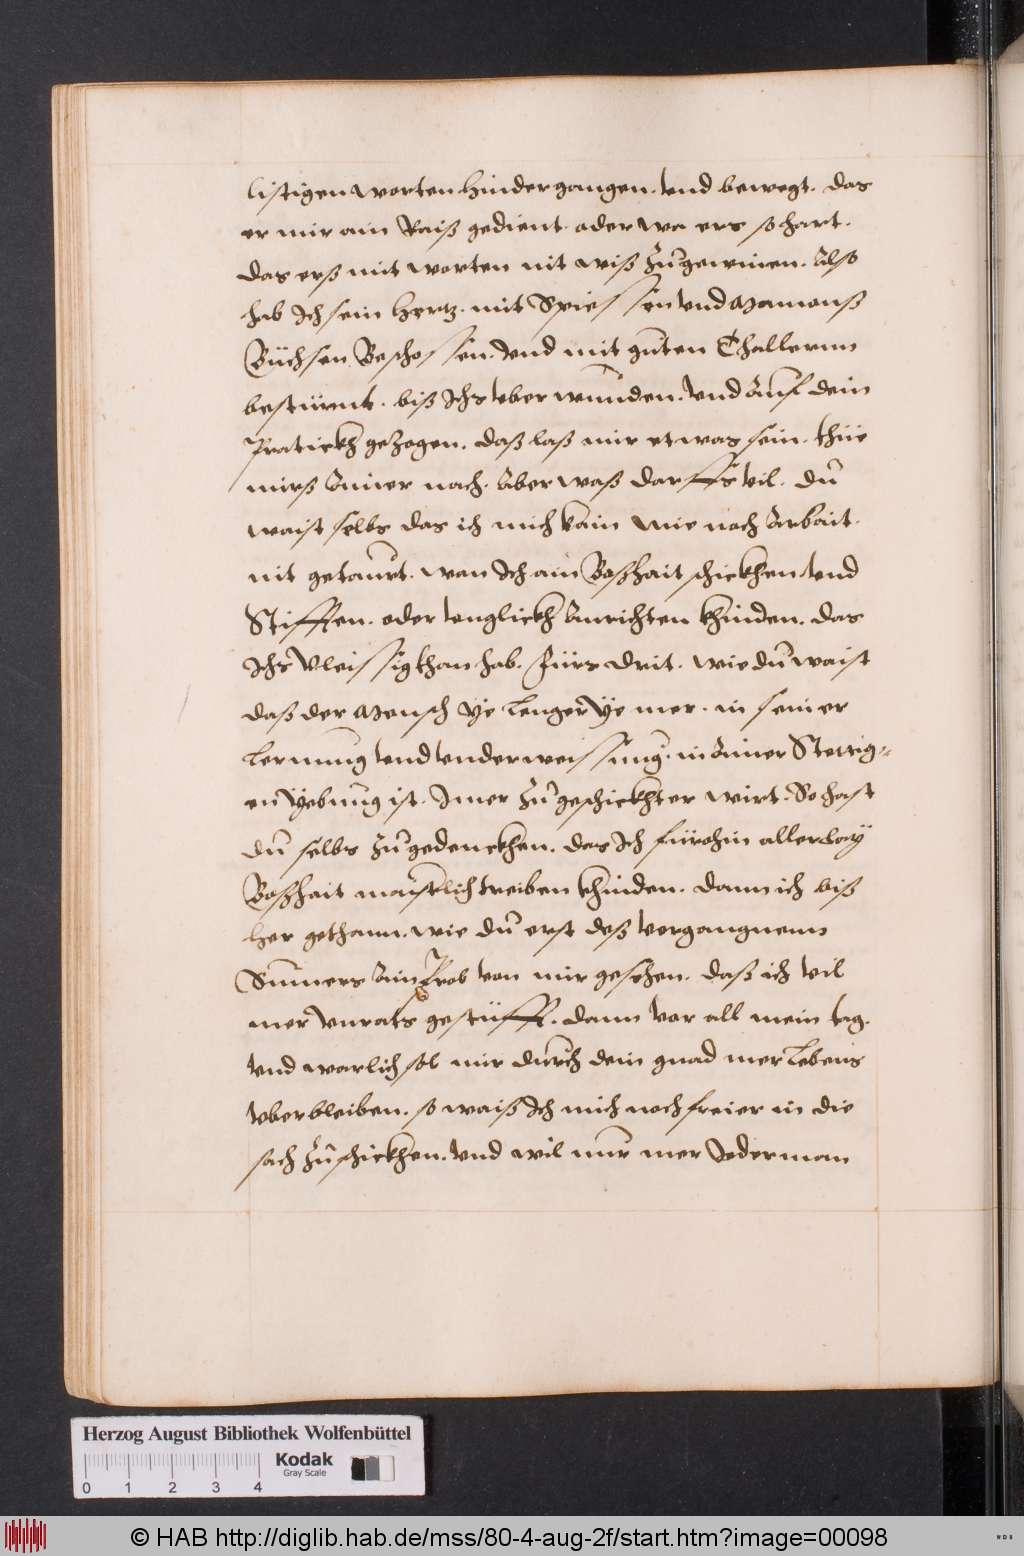 listigen worten hindergangen. vnd bewegt. das
er mir ain Raiß gedient. oder wa ers so hart.
das erß mit worten nit wiß zugewinen. Also
hab Ich sein hertz. mit Spiessen vnd Mamonß
Büchsen Beschossen. vnd mit guten Thallernn
bestürmt. biß Ichs vberwunden. vnd Auf dein
Pratickh gezogen. daß laß mir etwas sein. thüe
mirß Ainer nach. Aber waß darffs vil. du
waist selbs das ich mich kain mie noch Arbait.
nit getaurt. wan Ich ain Boßhait schickhen vnd
Stifften. oder vnglickh Anrichten khinden. das
Ichs Vleissig than hab. Fürs drit. wie du waist
daß der Mensch ye lenger ye mer. in seiner
lernnung vnd vnderweissung. in Ainer Stettig-
en yebung ist. Imer zu geschickhter wirt. So hast
du selbs zu gedenckhen. das Ich fürohin allerlay
Boßhait maistlich treiben khinden. dann ich biß
her gethann. wie du erst deß vergangnenn
Sumers Ain Prob von mir gesehen. daß ich vil
mer vnrats gestüfft. dann vor all mein tag.
vnd warlich sol mir durch dein gnad mer lebens
vberbleiben. so waiß Ich mich noch freier in die
sach zu schickhen. vnd wil nur mer Jederman
Herzog August Bibliothek Wolfenbüttel
Kodak
Gray Scale
0 1 2 3 4
© HAB http://diglib.hab.de/mss/80-4-aug-2f/start.htm?image=00098